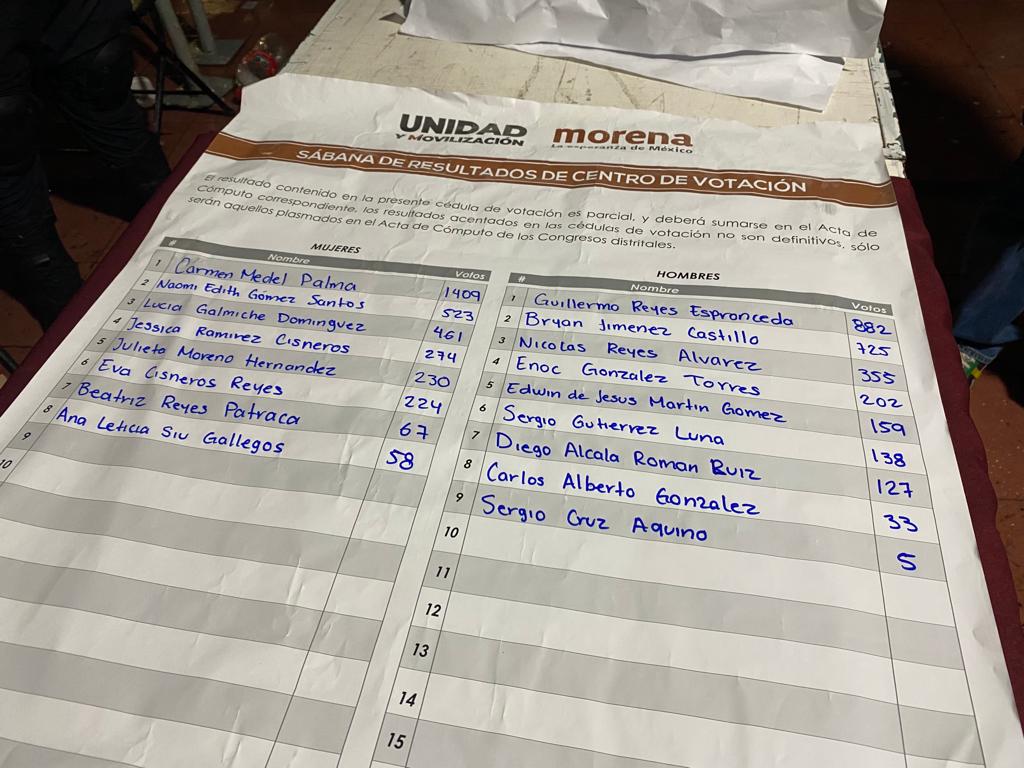 UNIDAD
Y MOVILIZACIÓN
morena
La esperanza de México
SÁBANA DE RESULTADOS DE CENTRO DE VOTACIÓN
El resultado contenido en la presente cédula de votación es parcial, y deberá sumarse en el Acta de
Cómputo correspondiente, los resultados acentados en las cédulas de votación no son definitivos, sólo
serán aquellos plasmados en el Acta de Cómputo de los Congresos distritales.
MUJERES
# Nombre Votos
1 Carmen Medel Palma 1409
2 Naomi Edith Gómez Santos 523
3 Lucia Galmiche Dominguez 461
4 Jessica Ramirez Cisneros 274
5 Julieta Moreno Hernandez 230
6 Eva Cisneros Reyes 224
7 Beatriz Reyes Patraca 67
8 Ana Leticia Siu Gallegos 58
9
10
HOMBRES
# Nombre Votos
1 Guillermo Reyes Espronceda 882
2 Bryan Jimenez Castillo 725
3 Nicolas Reyes Alvarez 355
4 Enoc Gonzalez Torres 202
5 Edwin de Jesus Martin Gomez 159
6 Sergio Gutierrez Luna 138
7 Diego Alcala Roman Ruiz 127
8 Carlos Alberto Gonzalez 33
9 Sergio Cruz Aquino 5
10
11
12
13
14
15